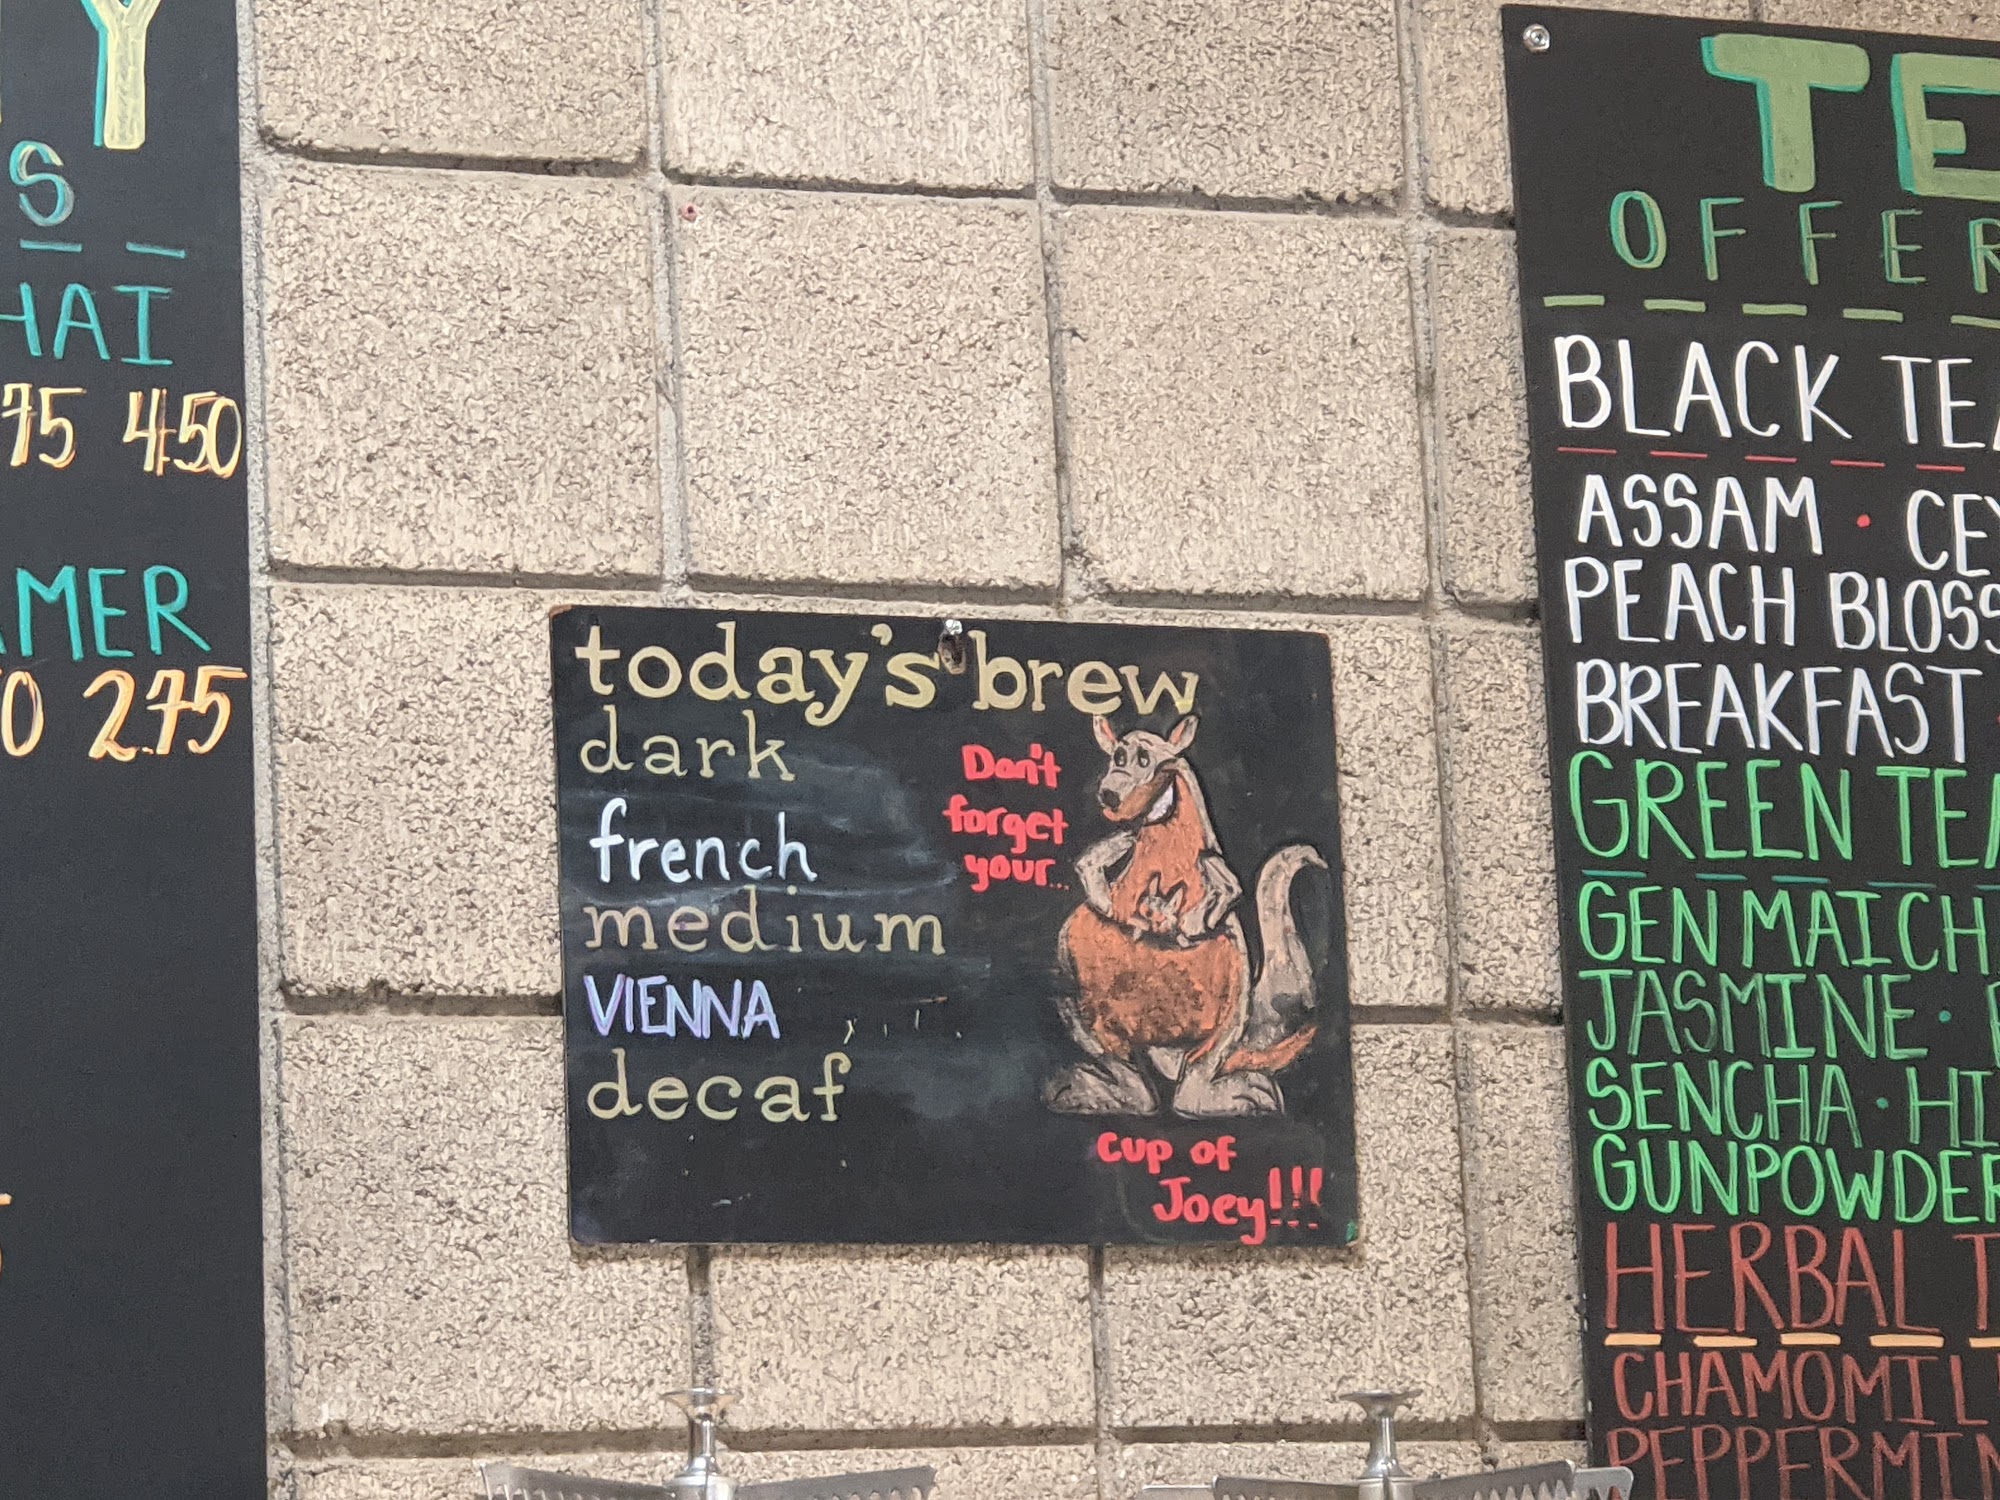 Y
S
HAI
75 4.50
AMER
0 2.75
today's brew
dark
french
medium
VIENNA
decaf
Don't
forget
your...
cup of
Joey!!!
TE
OFFER
BLACK TEA
ASSAM • CEY
PEACH BLOSS
BREAKFAST
GREEN TEA
GENMAICH
JASMINE •
SENCHA • HI
GUNPOWDER
HERBAL T
CHAMOMIL
PEPPERMIN